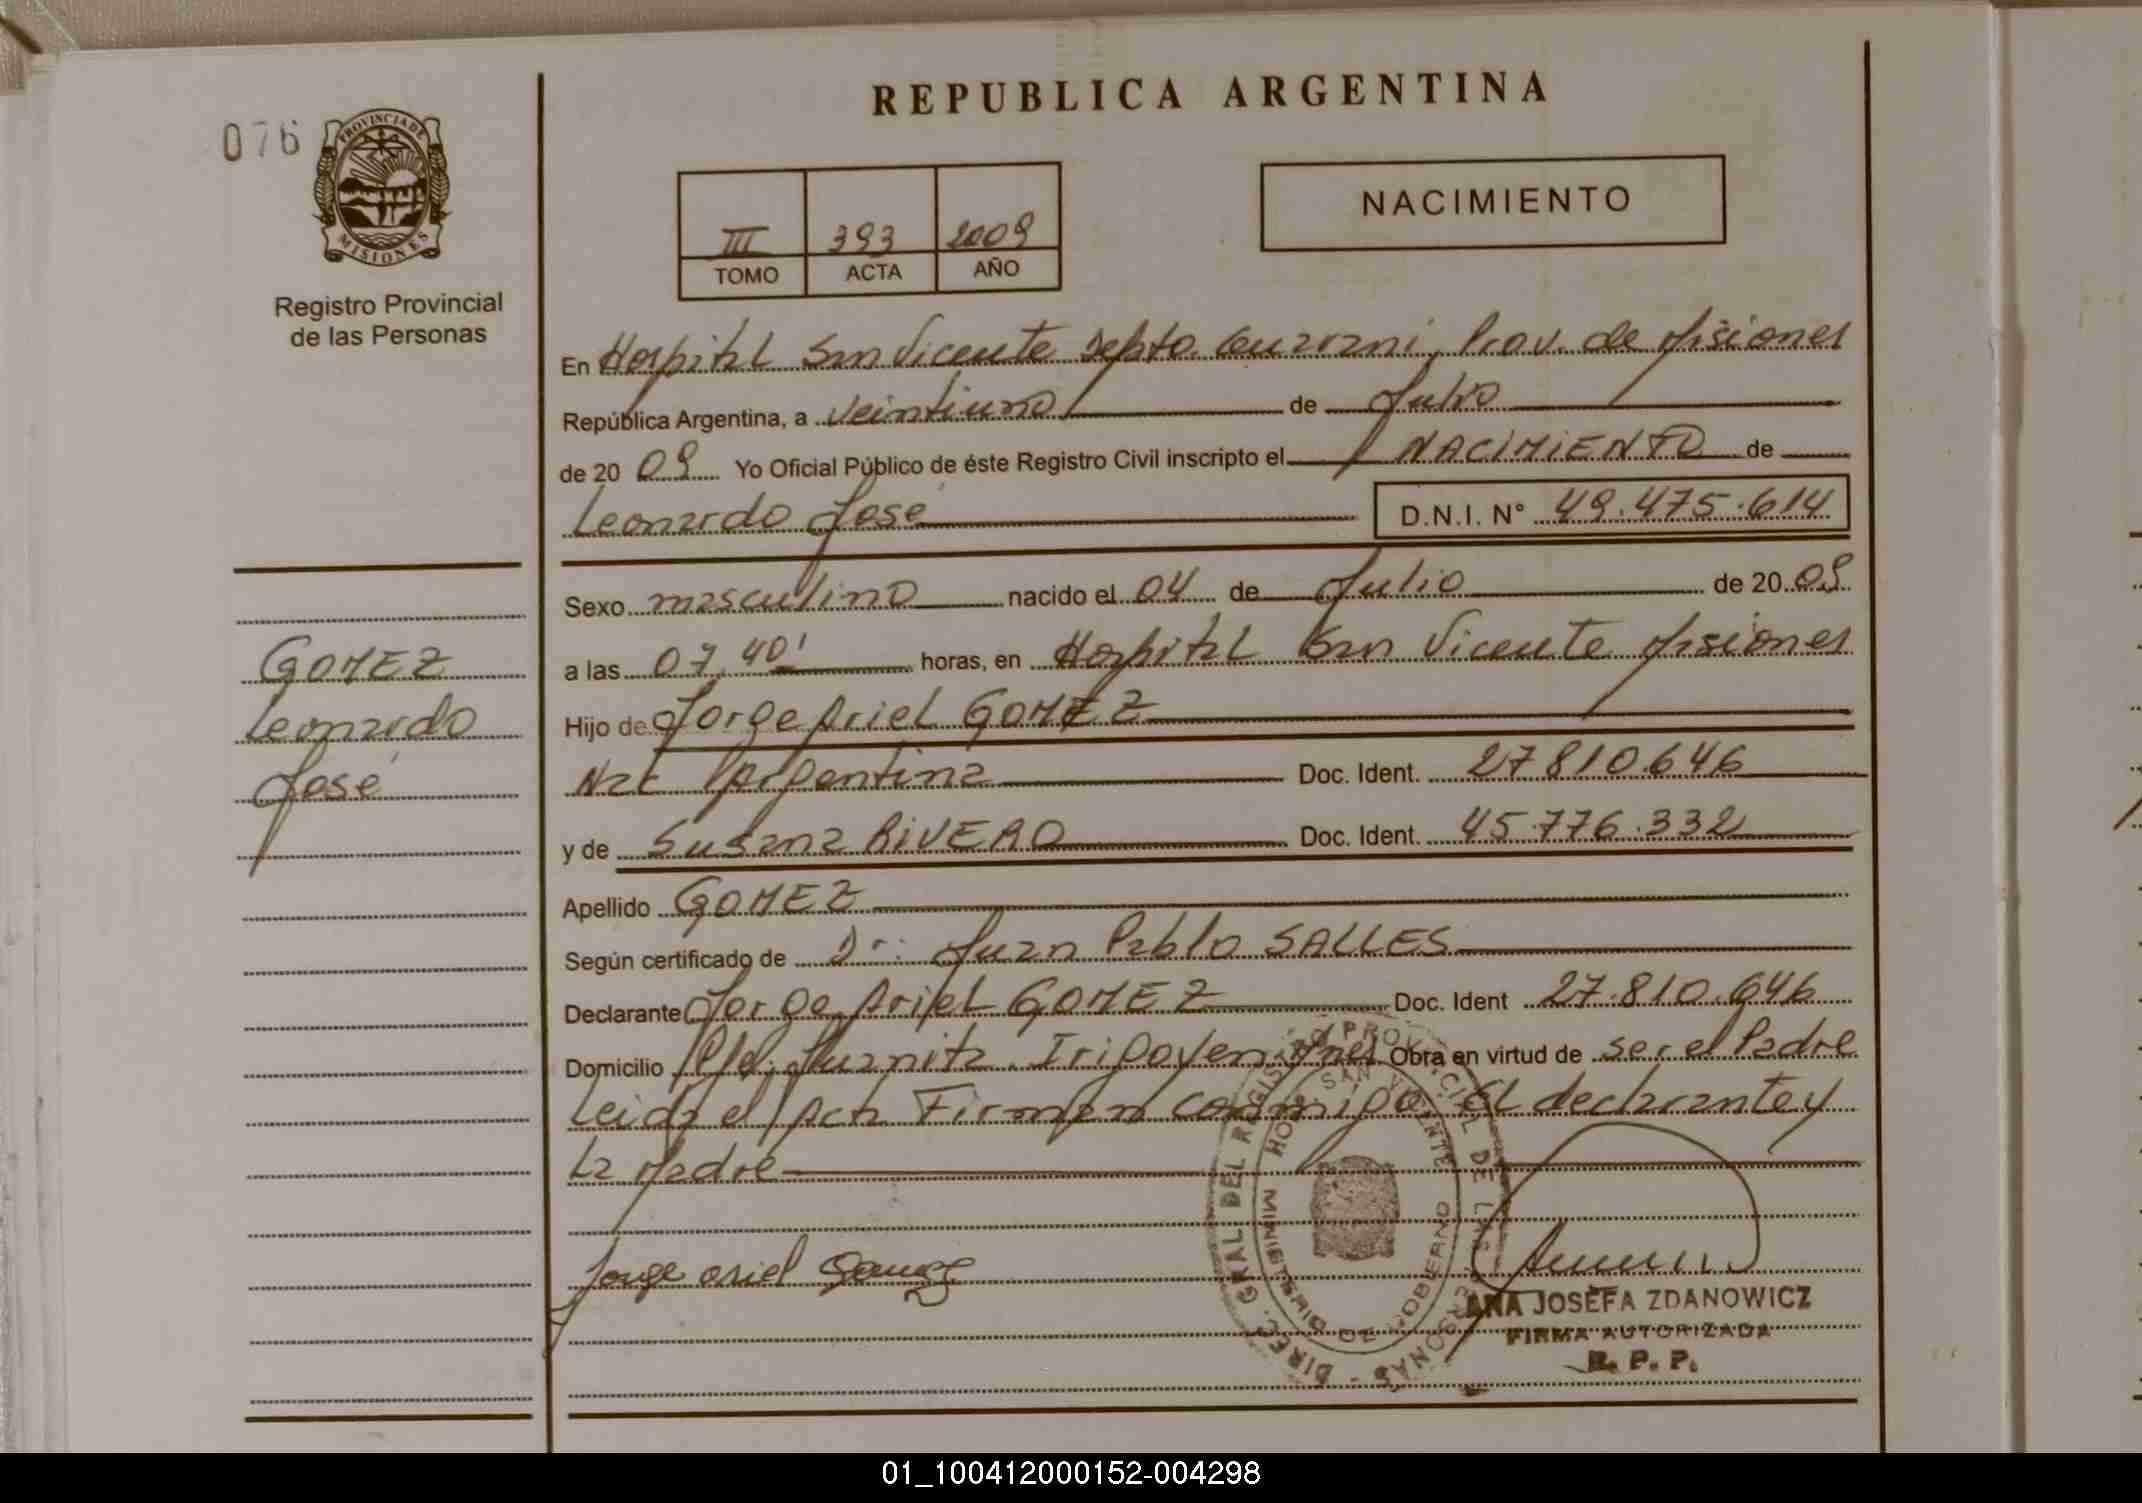 REPUBLICA ARGENTINA
076
PROVINCIA DE
MISIONES
Registro Provincial
de las Personas
III 393 2009
TOMO ACTA AÑO
NACIMIENTO
En Hospital San Vicente Depto. Guarani, Prov. de Misiones
República Argentina, a veintiuno de Julio
de 20 09 Yo Oficial Público de éste Registro Civil inscripto el NACIMIENTO de
Leonardo José D.N.I. N° 49.475.614
Sexo masculino nacido el 04 de Julio de 20 09
a las 07,40' horas, en Hospital San Vicente Misiones
Hijo de Jorge Ariel GOMEZ
Nac Argentina Doc. Ident. 27.810.646
y de Susana RIVERO Doc. Ident. 45.776.332
Apellido GOMEZ
Según certificado de Dr: Juan Pablo SALLES
Declarante Jorge Ariel GOMEZ Doc. Ident 27.810.646
Domicilio Juanita. Irigoyen Obra en virtud de ser el Padre
Leida el Acta Firman conmigo El declarante y
La Madre
Jorge ariel Gomez
GOMEZ
Leonardo
José
DIREC. GRAL DEL REGISTRO PROVINCIAL DE LAS PERSONAS
HOSP. SAN VICENTE
MINISTERIO DE GOBIERNO
ANA JOSEFA ZDANOWICZ
FIRMA AUTORIZADA
R. P. P.
01_100412000152-004298